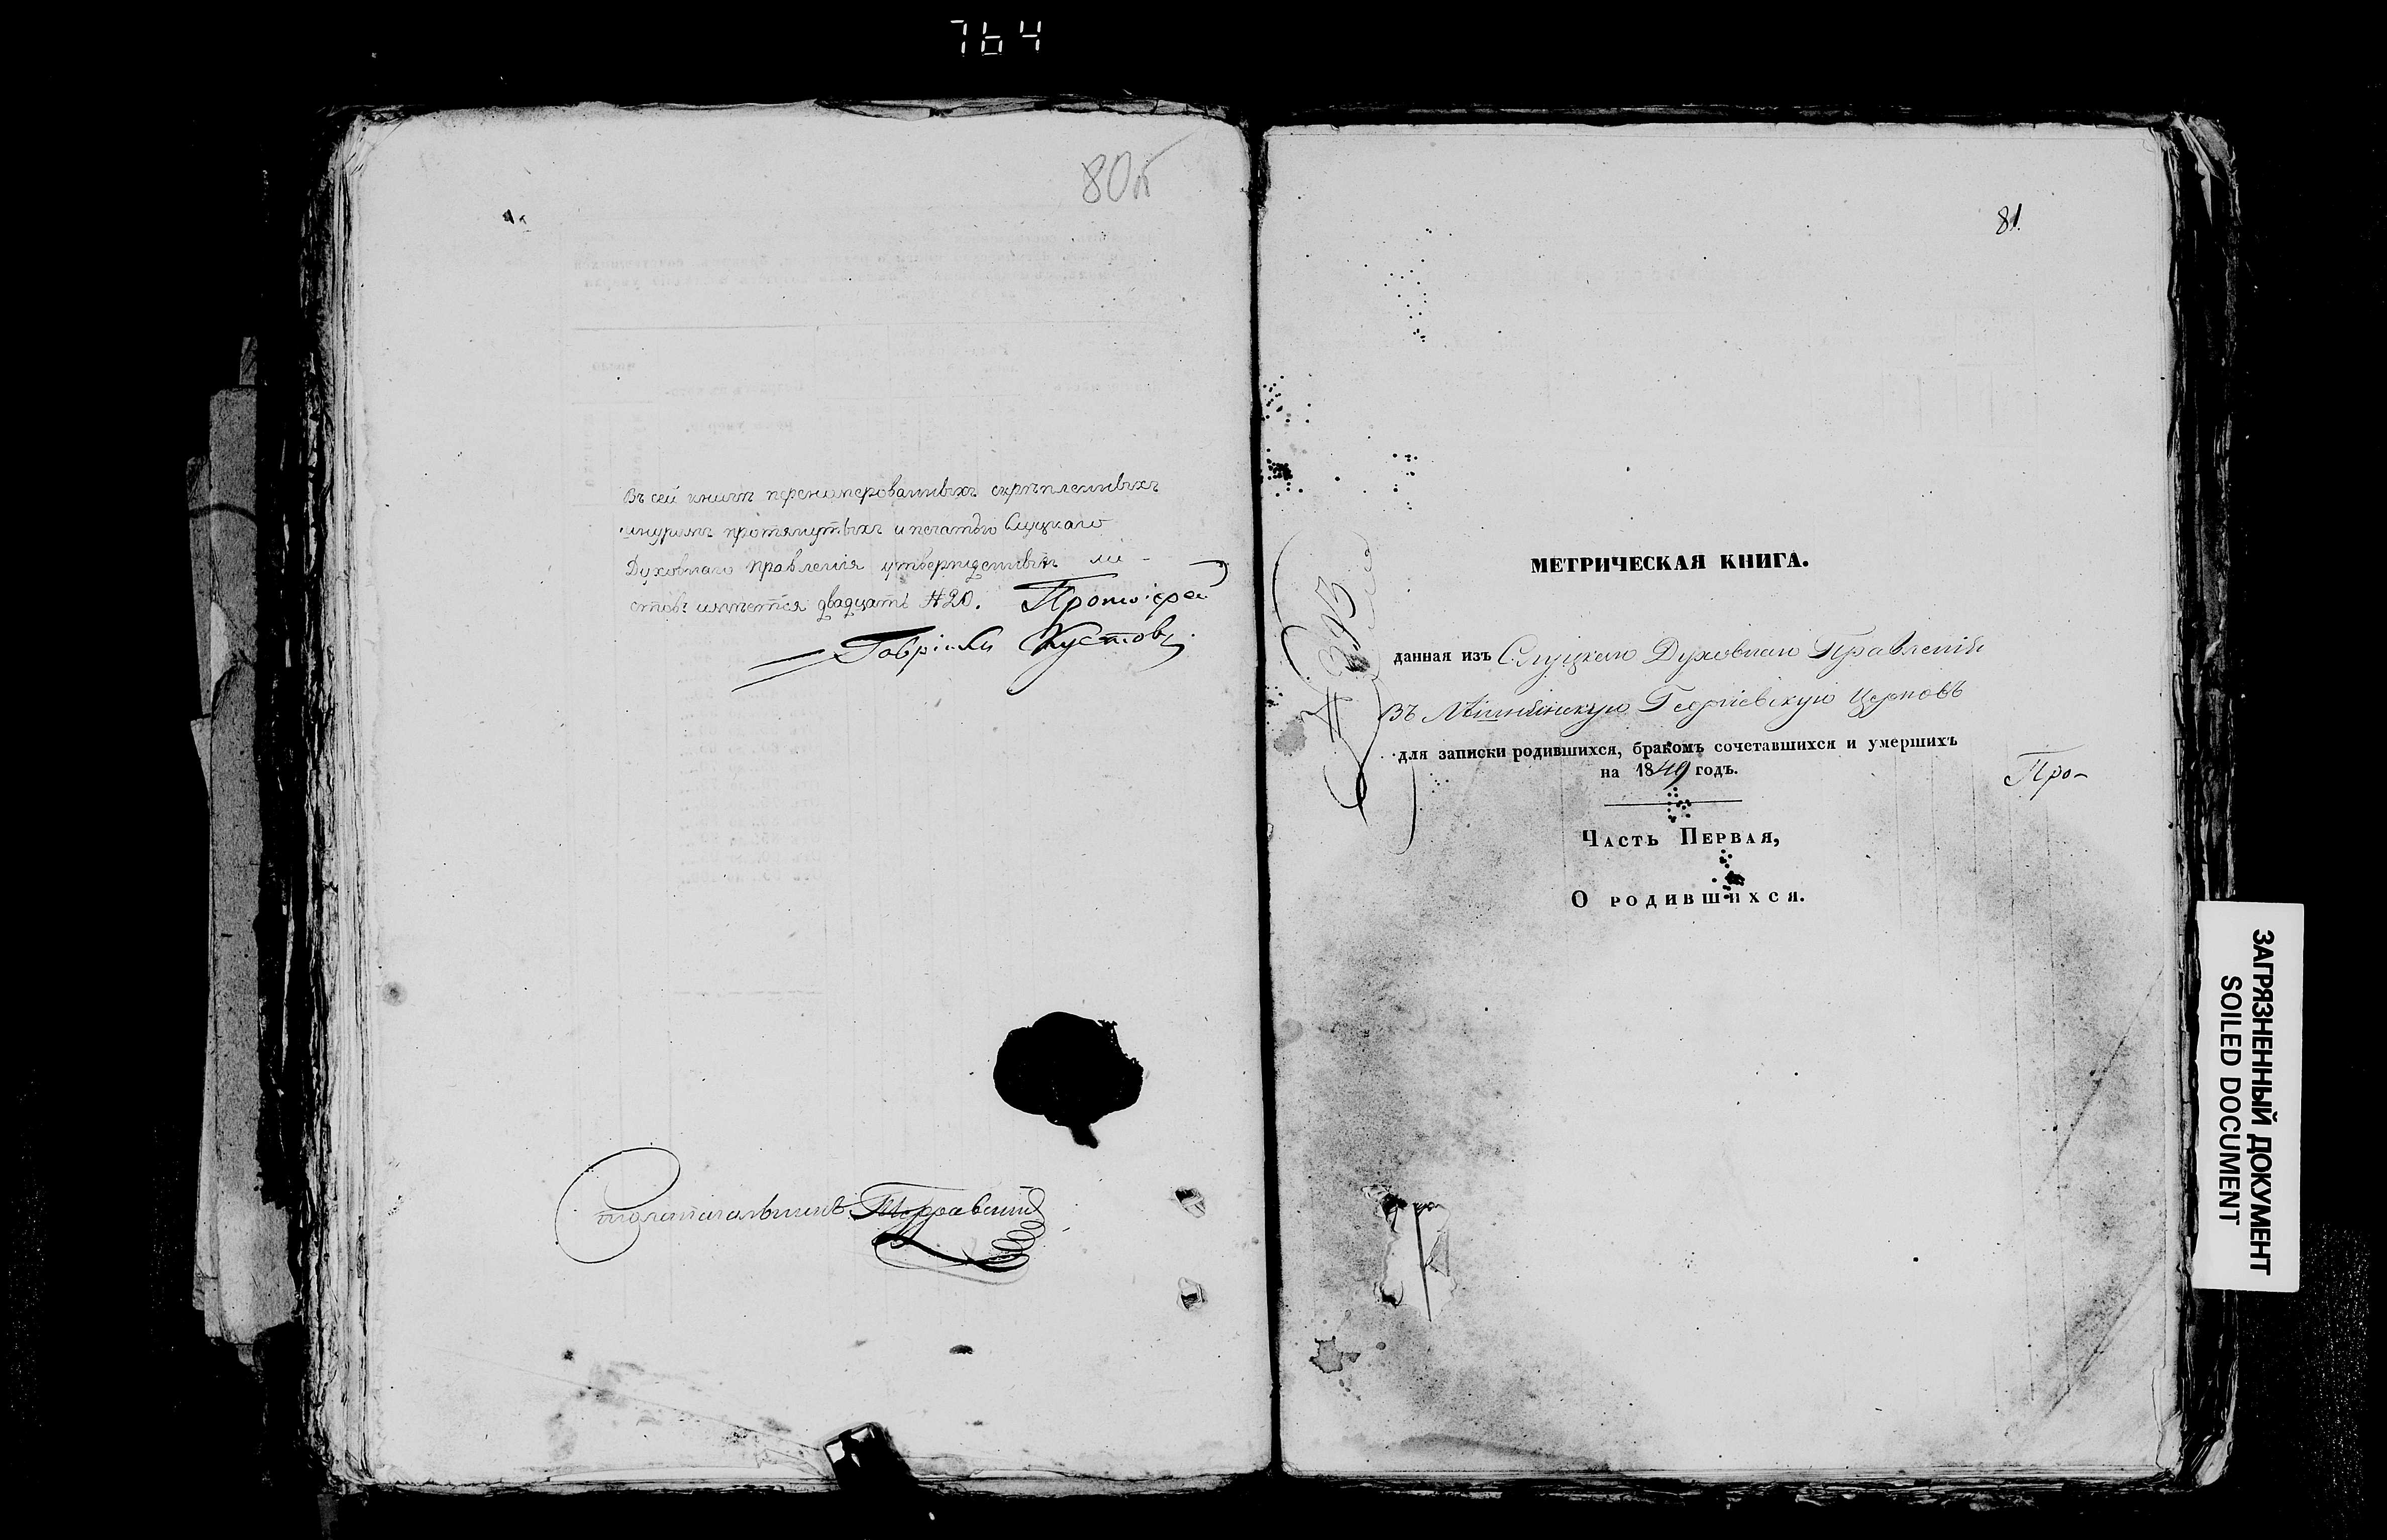 764
80об
Въ сей книгѣ перенумерованныхъ скрѣпленныхъ
шнуромъ протянутыхъ и печатью Слуцкаго
Духовнаго Правленія утвержденныхъ ли-
стовъ имѣется двадцать #20. Протоіерей
Гавріилъ
Столоначальникъ
81.
МЕТРИЧЕСКАЯ КНИГА.
#393
данная изъ Слуцкаго Духовнаго Правленія
Въ Георгіевскую Церковь
для записки родившихся, бракомъ сочетавшихся и умершихъ
на 1849 годъ.
Про-
Часть Первая,
О родившихся.
ЗАГРЯЗНЕННЫЙ ДОКУМЕНТ
SOILED DOCUMENT